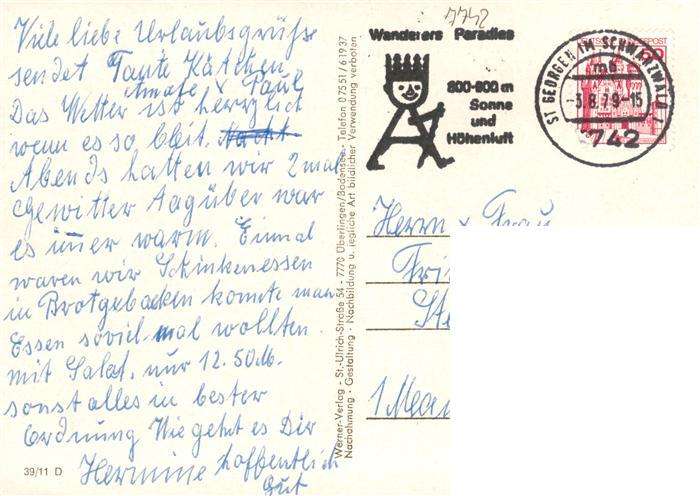 Viele liebe Urlaubsgrüße
sendet Tante Kätchen
Beate & Paul
Das Wetter ist herrlich
wenn es so bleit. Nacht
Abends hatten wir 2 mal
Gewitter Tagüber war
es imer warm. Einmal
waren wir Schinkenessen
in Brotgebacken konnte man
Essen soviel mal wollten
mit Salat. nur 12.50 M.
sonst alles in bester
Ordnung Wie geht es Dir
Hermine hoffentlich
Gut
39/11 D
Werner-Verlag - St.-Ulrich-Straße 54 - 7770 Überlingen/Bodensee - Telefon 07551/61937
Nachahmung - Gestaltung - Nachbildung u. jegliche Art bildlicher Verwendung verboten
7742
Wanderers Paradies
800-900 m
Sonne
und
Höhenluft
ST GEORGEN IM SCHWARZWALD 1
mb
-3.8.79-15
742
Herrn u Frau
1